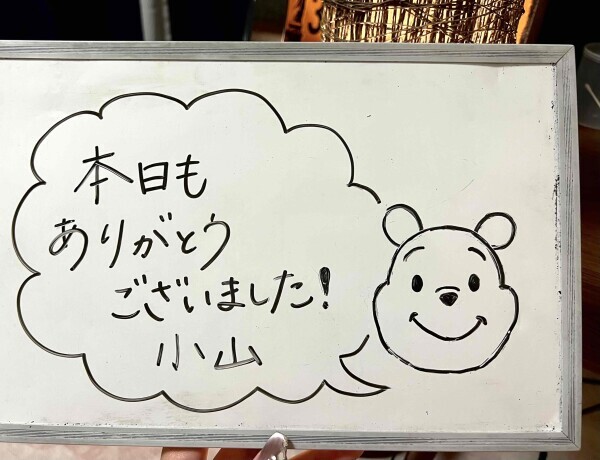 本日も
ありがとう
ございました!
小山